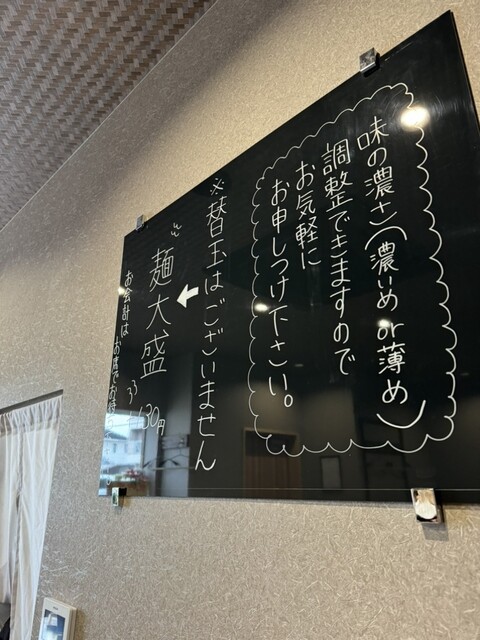 味の濃さ(濃いめor薄め)
調整できますので
お気軽に
お申しつけ下さい。
※替玉はございません
麺大盛 130円
お会計はお席でお待